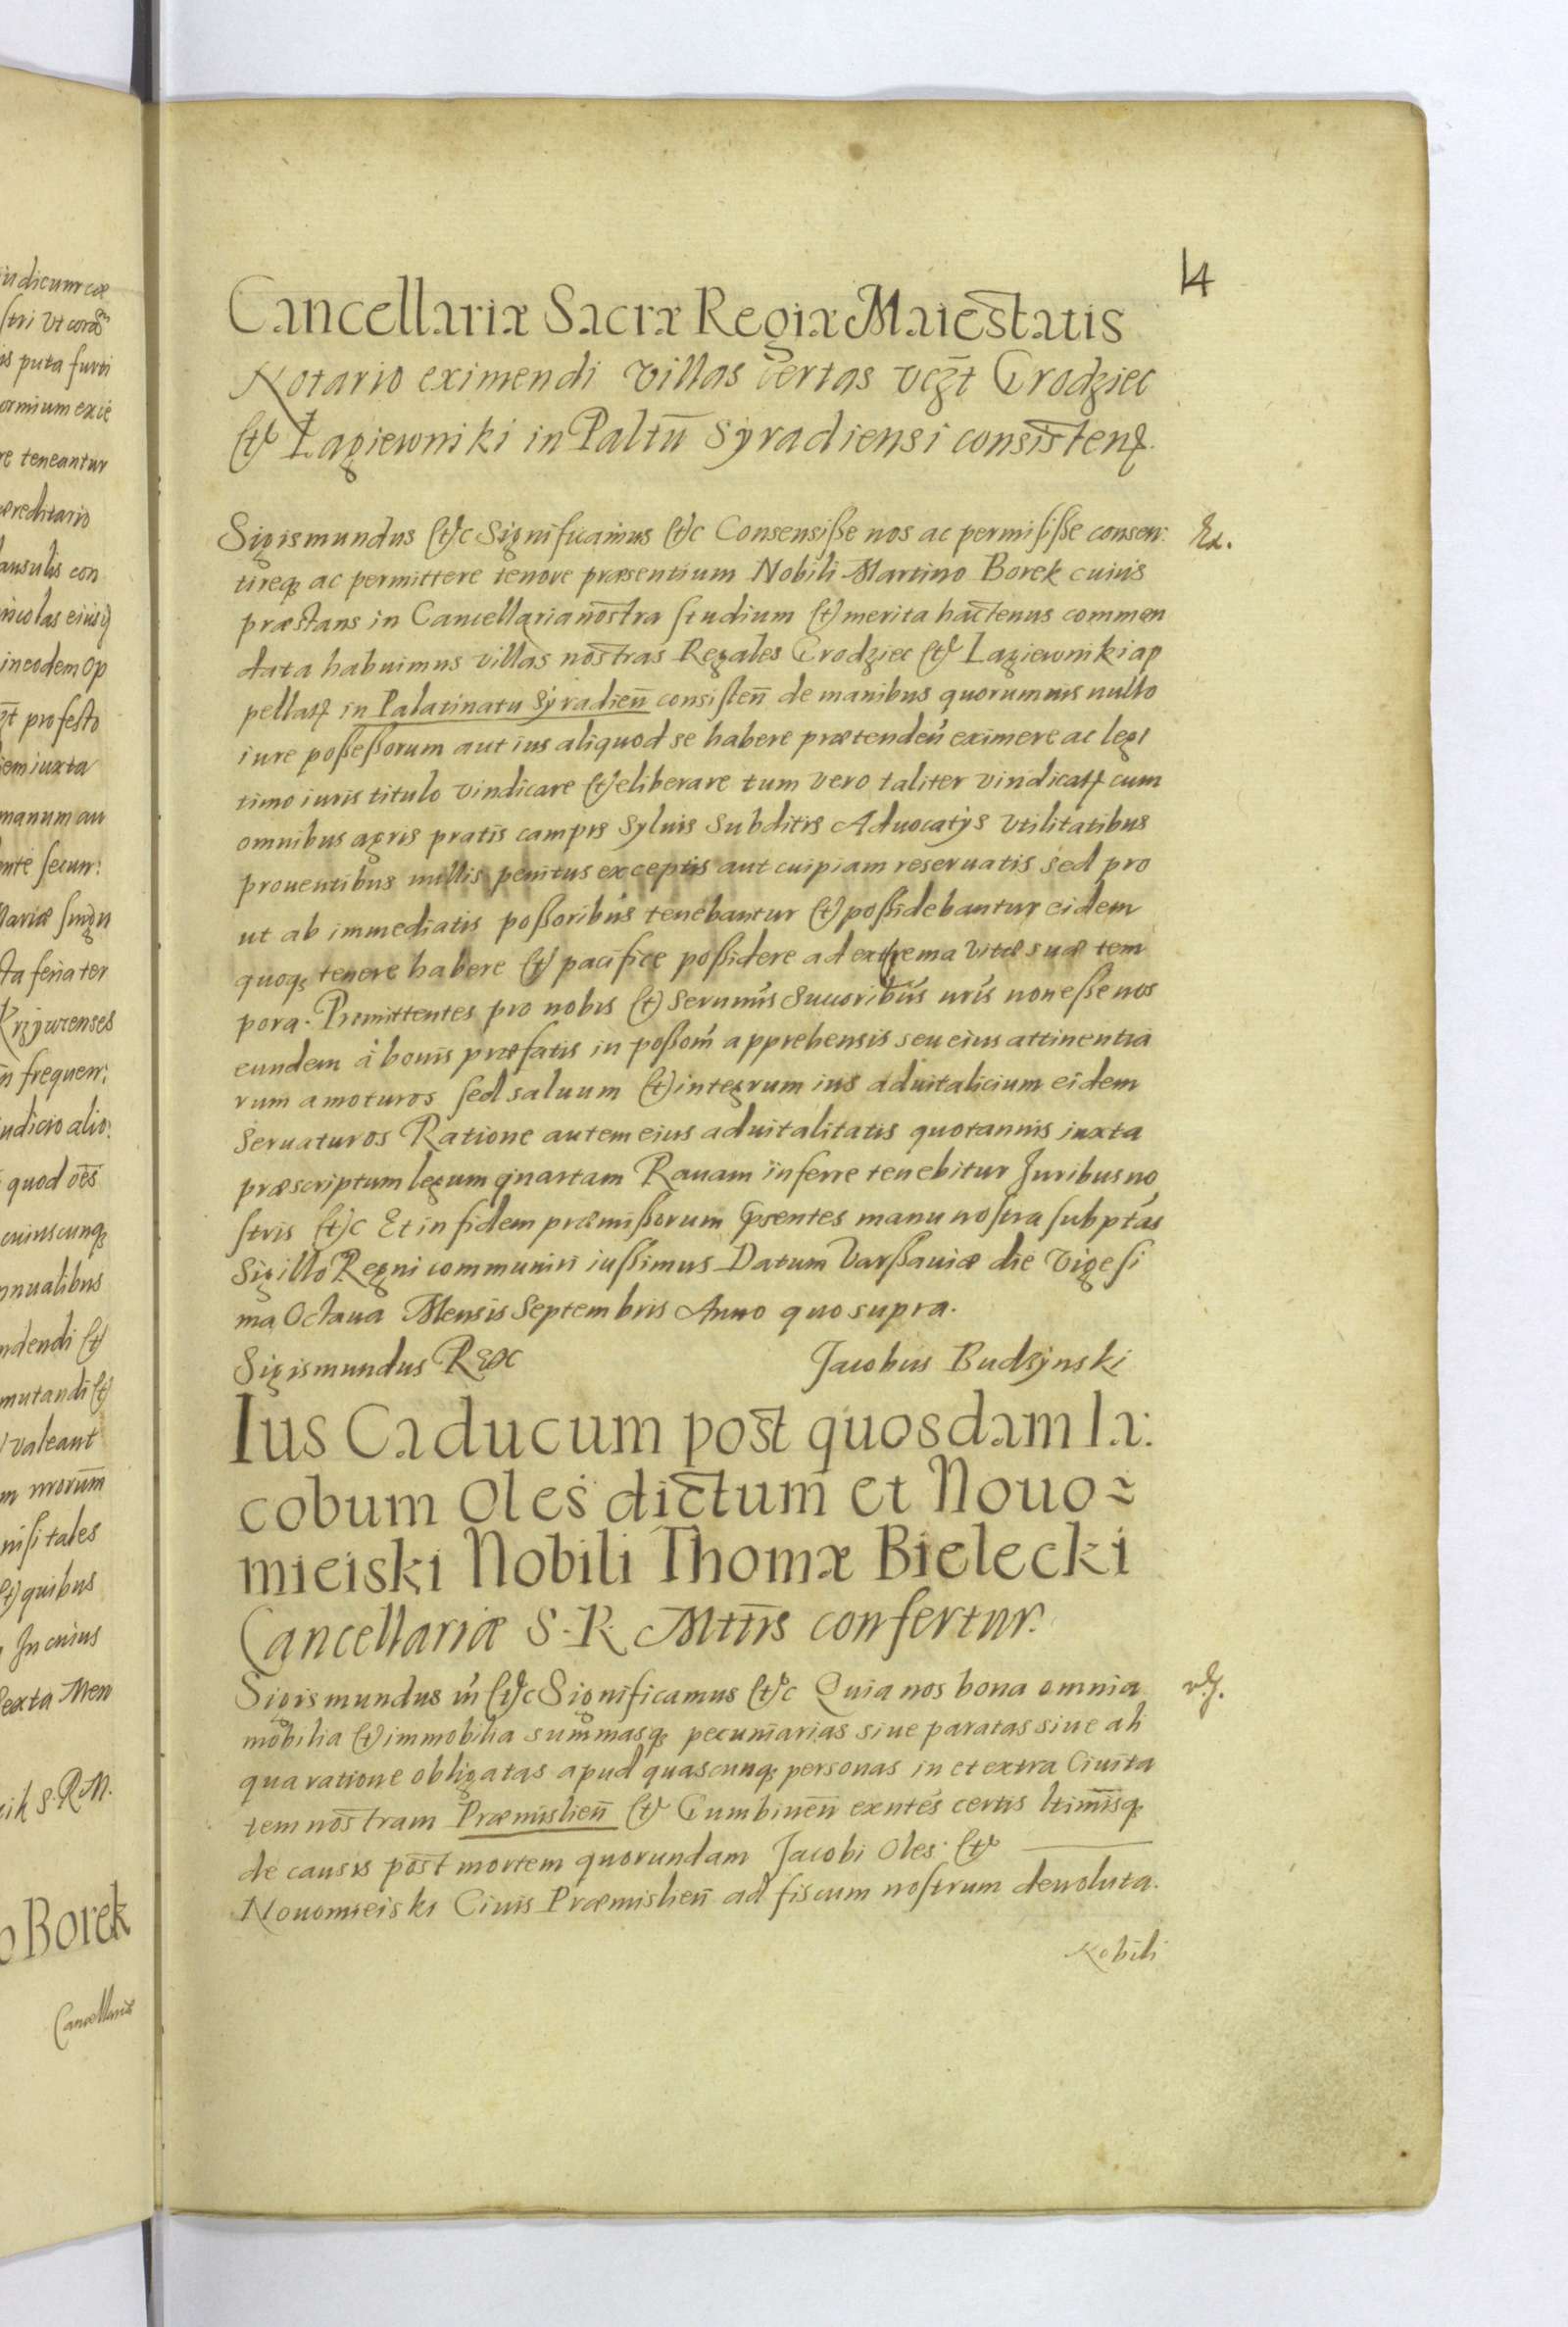 14
Cancellariæ Sacræ Regiæ Maiestatis
Notario eximendi villas certas vcz̄t Grodziec
et Łagiewniki in Paltū Syradiensi consisten̄.
Sigismundus etc Significamus etc Consensisse nos ac permisisse consen:
tireq; ac permittere tenore præsentium Nobili Martino Borek cuius
præstans in Cancellaria nostra studium et merita hactenus commen
data habuimus villas nostras Regales Grodziec et Lagiewniki ap
pellatꝭ in Palatinatu Syradien̄ consisten̄ de manibus quorumvis nullo
iure possessorum aut ius aliquod se habere prætenden̄ eximere ac legi
timo iuris titulo vindicare et eliberare tum vero taliter vindicatꝭ cum
omnibus agris pratis campis Syluis Subditis Aduocatÿs vtilitatibus
prouentibus nullis penitus exceptis aut cuipiam reseruatis sed pro
ut ab immediatis possoribus tenebantur et possidebantur eidem
quoq; tenere habere et pacifice possidere ad extrema vitæ suæ tem
pora. Promittentes pro nobis et Serenmis Succoribus nris non esse nos
eundem à bonis præfatis in possom apprehensis seu eius attinentia
rum amoturos sed saluum et integrum ius aduitalicium eidem
Seruaturos Ratione autem eius aduitalitatis quotannis iuxta
præscriptum legum quartam Rauam inferre tenebitur Juribus no
stris etc Et in fidem præmissorum p̄sentes manu nostra subptas
Sigillo Regni communiri iussimus Datum Varssauiæ die vigesi
ma Octaua Mensis Septembris Anno quo supra.
Sigismundus Rex Jacobus Budzynski
Ius Caducum post quosdam Ia:
cobum Oles dictum et Nouo=
mieiski Nobili Thomæ Bielecki
Cancellariæ S. R. Mttis confertur.
Sigismundus etc Significamus etc Quia nos bona omnia
mobilia et immobilia summasq; pecuniarias siue paratas siue ali
qua ratione obligatas apud quascunq; personas in et extra Ciuita
tem nostram Præmislien̄ et Gumbinen̄ exntes certis ltimisq;
de causis post mortem quorundam Jacobi Oles et
Nouomieiski Ciuis Præmislien̄ ad fiscum nostrum deuoluta.
Nobili